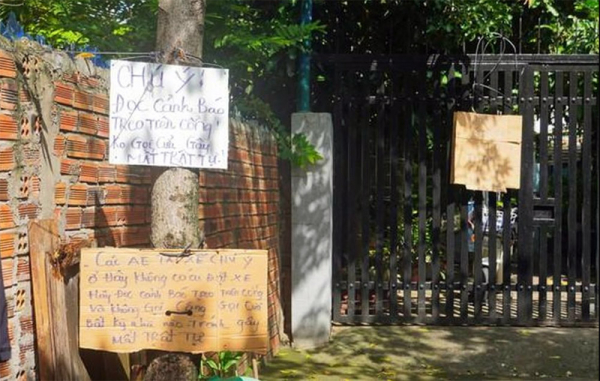 CHÚ Ý!
ĐỌC Cảnh Báo
TREO Trên Cổng!
Ko Gọi Cửa Gây
MẤT TRẬT TỰ!
Các AE TÀI XẾ CHÚ Ý
Ở Đây Không có ai ĐẶT XE
Hãy Đọc Cảnh Báo TREO Trên CỔNG
Và Không Gọi Cửa
Bất Kỳ nhà nào Tránh gây
MẤT TRẬT TỰ